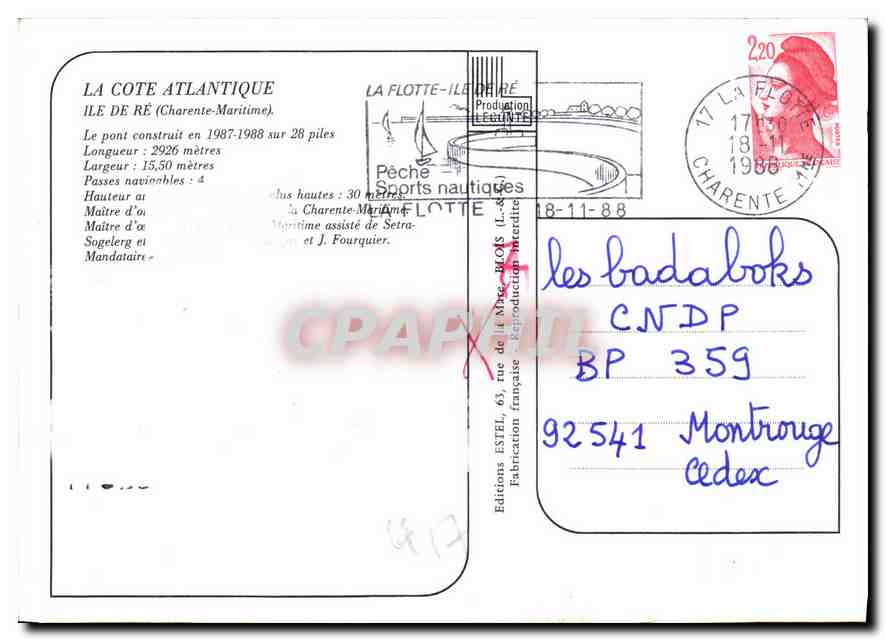 LA COTE ATLANTIQUE
ILE DE RÉ (Charente-Maritime).
Le pont construit en 1987-1988 sur 28 piles
Longueur : 2926 mètres
Largeur : 15,50 mètres
Passes navigables : 4
Hauteur hautes : 30 mètres.
Maître la Charente-Maritime.
Maître assisté de Setra-
Sogelerg et et J. Fourquier.
LA FLOTTE-ILE DE RÉ
Production
LECONTE
Pêche
Sports nautiques
LA FLOTTE 18-11-88
2,20
17 LA FLOTTE
18-11
CHARENTE MME
Editions ESTEL, 63, rue de la Mare, BLOIS (L.-&-C.)
Fabrication française - Reproduction interdite.
les badaboks
CNDP
BP 359
92541 Montrouge
Cedex
CPAPHIL